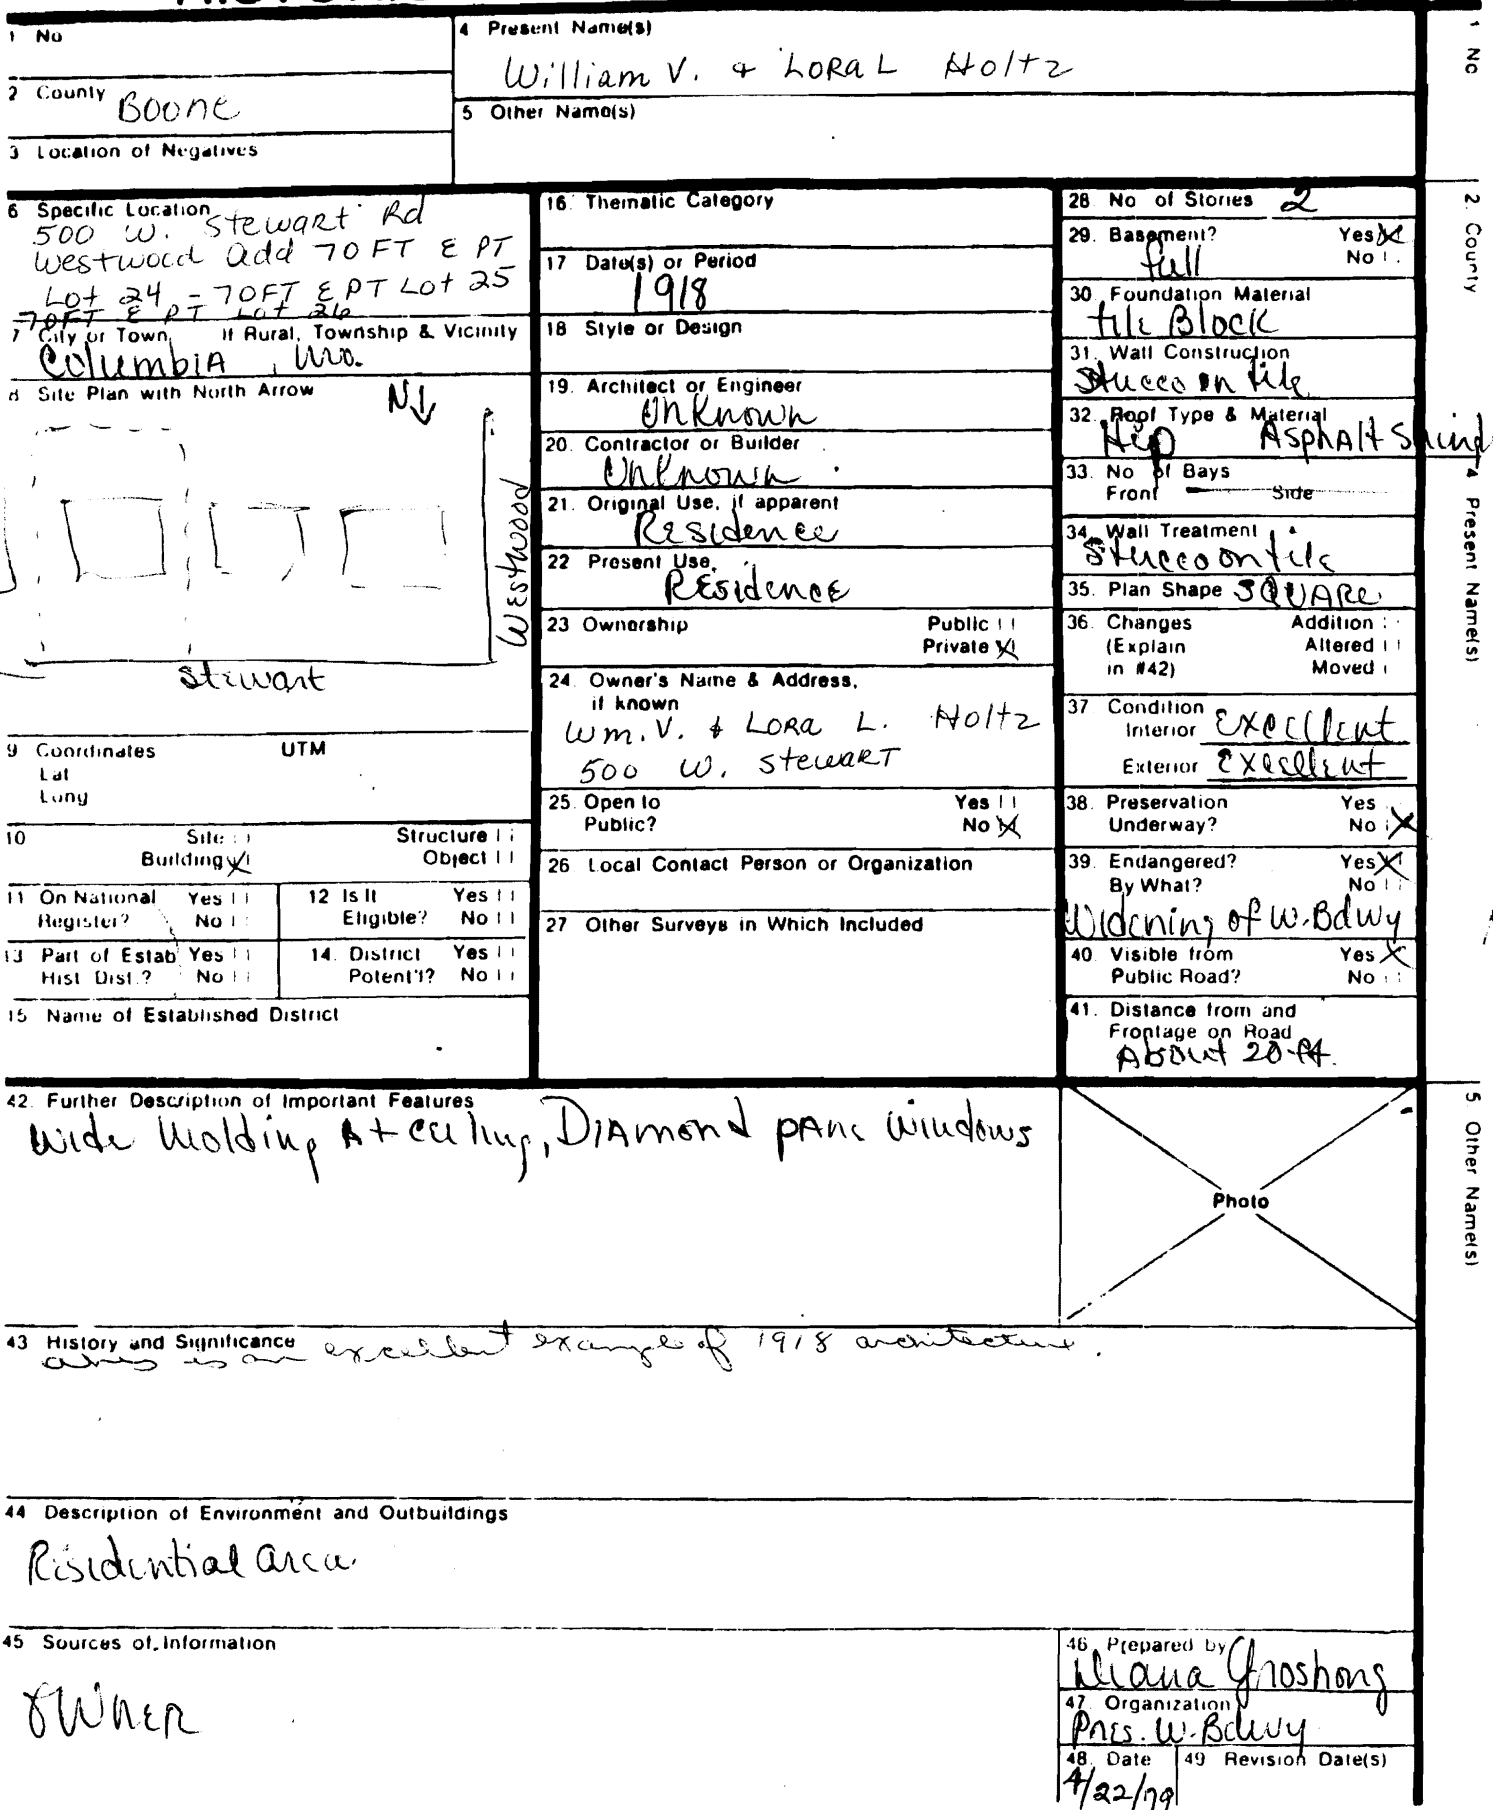 1 No
4 Present Name(s)
William V. & LORA L Holtz
2 County Boone
5 Other Name(s)
3 Location of Negatives
6 Specific Location
500 W. Stewart Rd
Westwood Add 70 FT E PT
Lot 24 - 70 FT E PT Lot 25
70 FT E PT Lot 26
7 City or Town, If Rural, Township & Vicinity
Columbia, Mo.
8 Site Plan with North Arrow
N
Westwood
Stewart
9 Coordinates UTM
Lat
Long
10 Site Structure
Building X Object
11 On National Register? Yes No
12 Is It Eligible? Yes No
13 Part of Estab Hist Dist.? Yes No
14. District Potent'l? Yes No
15 Name of Established District
16. Thematic Category
17 Date(s) or Period
1918
18 Style or Design
19. Architect or Engineer
Unknown
20. Contractor or Builder
Unknown
21. Original Use, if apparent
Residence
22 Present Use,
Residence
23 Ownership Public
Private X
24. Owner's Name & Address,
if known
Wm. V. & LORA L. Holtz
500 W. Stewart
25. Open to Yes
Public? No X
26 Local Contact Person or Organization
27 Other Surveys in Which Included
28 No of Stories 2
29. Basement? Yes X
full No
30. Foundation Material
tile Block
31. Wall Construction
Stucco on tile
32. Roof Type & Material
Hip Asphalt Shing
33. No of Bays
Front Side
34. Wall Treatment
Stucco on tile
35. Plan Shape SQUARE
36. Changes Addition
(Explain Altered
in #42) Moved
37 Condition
Interior Excellent
Exterior Excellent
38. Preservation Yes
Underway? No X
39. Endangered? Yes X
By What? No
Widening of W. Bdwy
40. Visible from Yes X
Public Road? No
41. Distance from and
Frontage on Road
About 20 ft.
42. Further Description of Important Features
Wide Molding At ceiling, Diamond pane windows
Photo
43 History and Significance
This is an excellent example of 1918 architecture.
44 Description of Environment and Outbuildings
Residential area.
45 Sources of Information
OWNER
46. Prepared by
Diana Groshong
47. Organization
Pres. W. Bdwy
48. Date
4/22/79
49 Revision Date(s)
1 No
2. County
4 Present Name(s)
5 Other Name(s)